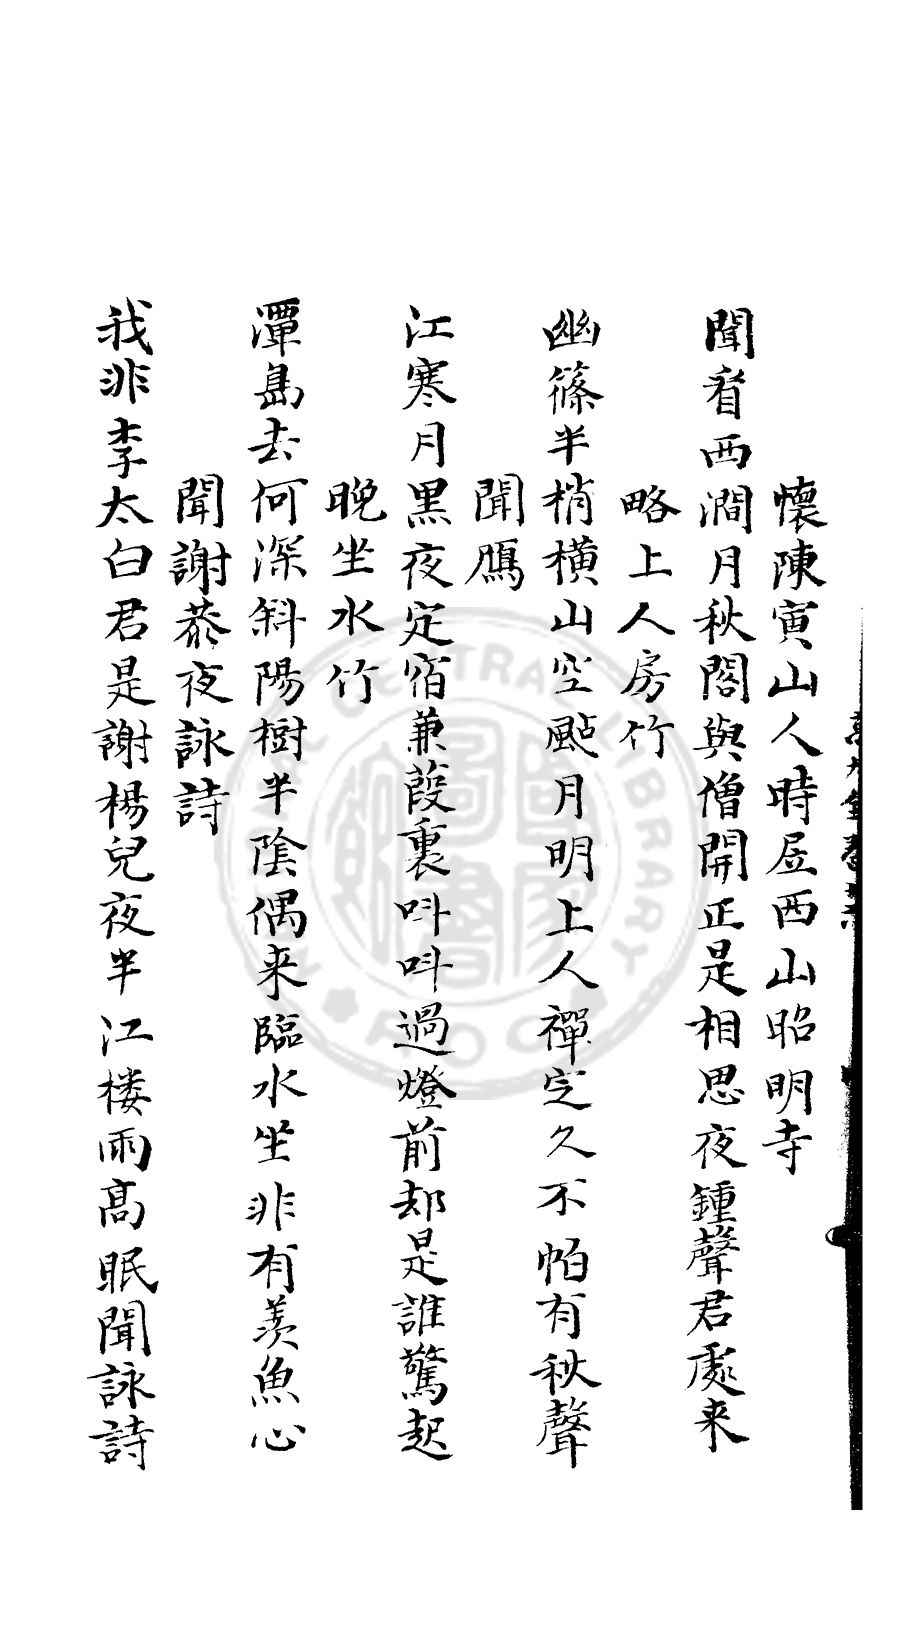 懷陳寅山人時㞐西山昭明寺
聞看西澗月秋閣與僧開正是相思夜鍾聲君處来
略上人房竹
幽篠半梢橫山空颭月明上人禪定久不怕有秋聲
聞鴈
江寒月黑夜定宿兼葭裏呌呌過燈前却是誰驚起
晚坐水竹
潭島去何深斜陽樹半陰偶来臨水坐非有羨魚心
聞謝恭夜詠詩
我非李太白君是謝楊兒夜半江楼雨高眠聞詠詩